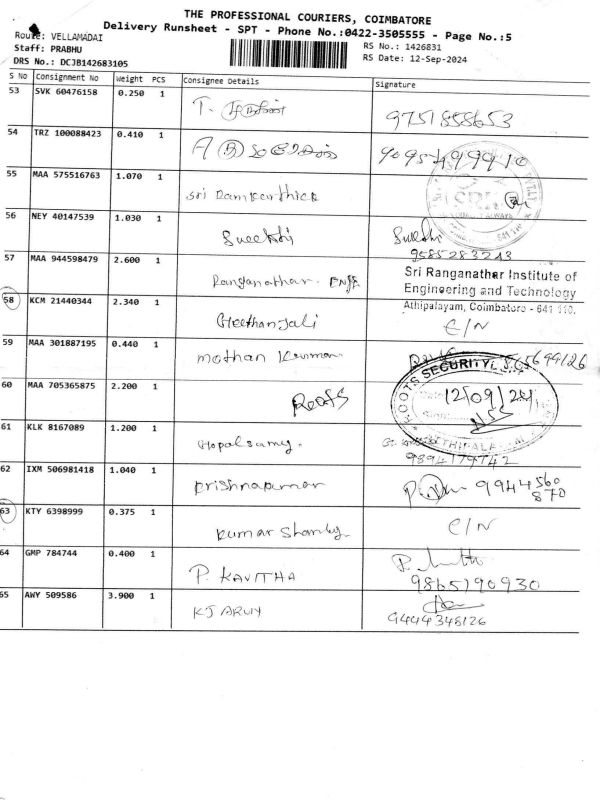 THE PROFESSIONAL COURIERS, COIMBATORE
Delivery Runsheet - SPT - Phone No.:0422-3505555 - Page No.:5
Route: VELLAMADAI
RS No.: 1426831
Staff: PRABHU
RS Date: 12-Sep-2024
DRS No.: DCJB142683105
S No Consignment No Weight PCS Consignee Details Signature
53 SVK 60476158 0.250 1
T.
9751858653
54 TRZ 100088423 0.410 1
55 MAA 575516763 1.070 1
Sri
56 NEY 40147539 1.030 1
9585283243
57 MAA 944598479 2.600 1
Ranganathar. Engg
Sri Ranganathar Institute of
Engineering and Technology
Athipalayam, Coimbatore - 641 110.
58 KCM 21440344 2.340 1
Geethanjali
C/N
59 MAA 301887195 0.440 1
mothan Kumar
60 MAA 705365875 2.200 1
Roots
ROOTS SECURITY
12/09/24
61 KLK 8167089 1.200 1
Gopalsamy.
9894179742
62 IXM 506981418 1.040 1
9944560
870
63 KTY 6398999 0.375 1
Kumar
C/N
64 GMP 784744 0.400 1
P. KAVITHA
9865190930
65 AWY 509586 3.900 1
KJ
9444348126